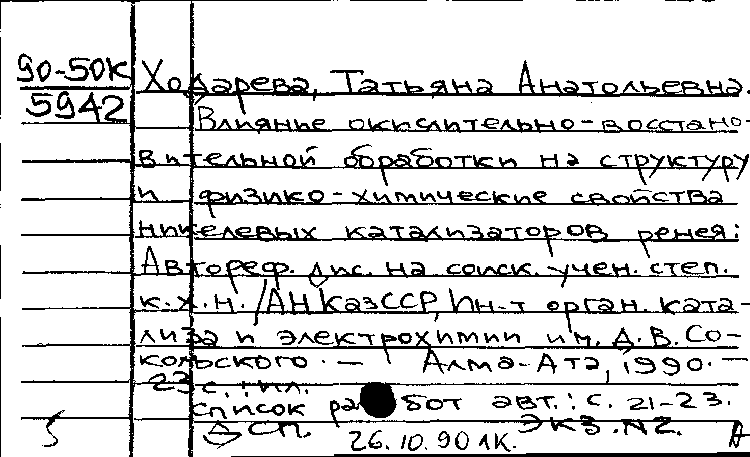 90-50К
5942
Ходарева, Татьяна Анатольевна.
Влияние окислительно-восстано-
вительной обработки на структуру
и физико-химические свойства
никелевых катализаторов ренея:
Автореф. дис. на соиск. учен. степ.
к.х.н. /АН КазССР, Ин-т орган. ката-
лиза и электрохимии им. Д.В. Со-
кольского. — Алма-Ата, 1990. —
23 с. : ил.
Список работ авт.: с. 21-23.
ДСП. ЭКЗ. N2.
26.10.90 ЛК.